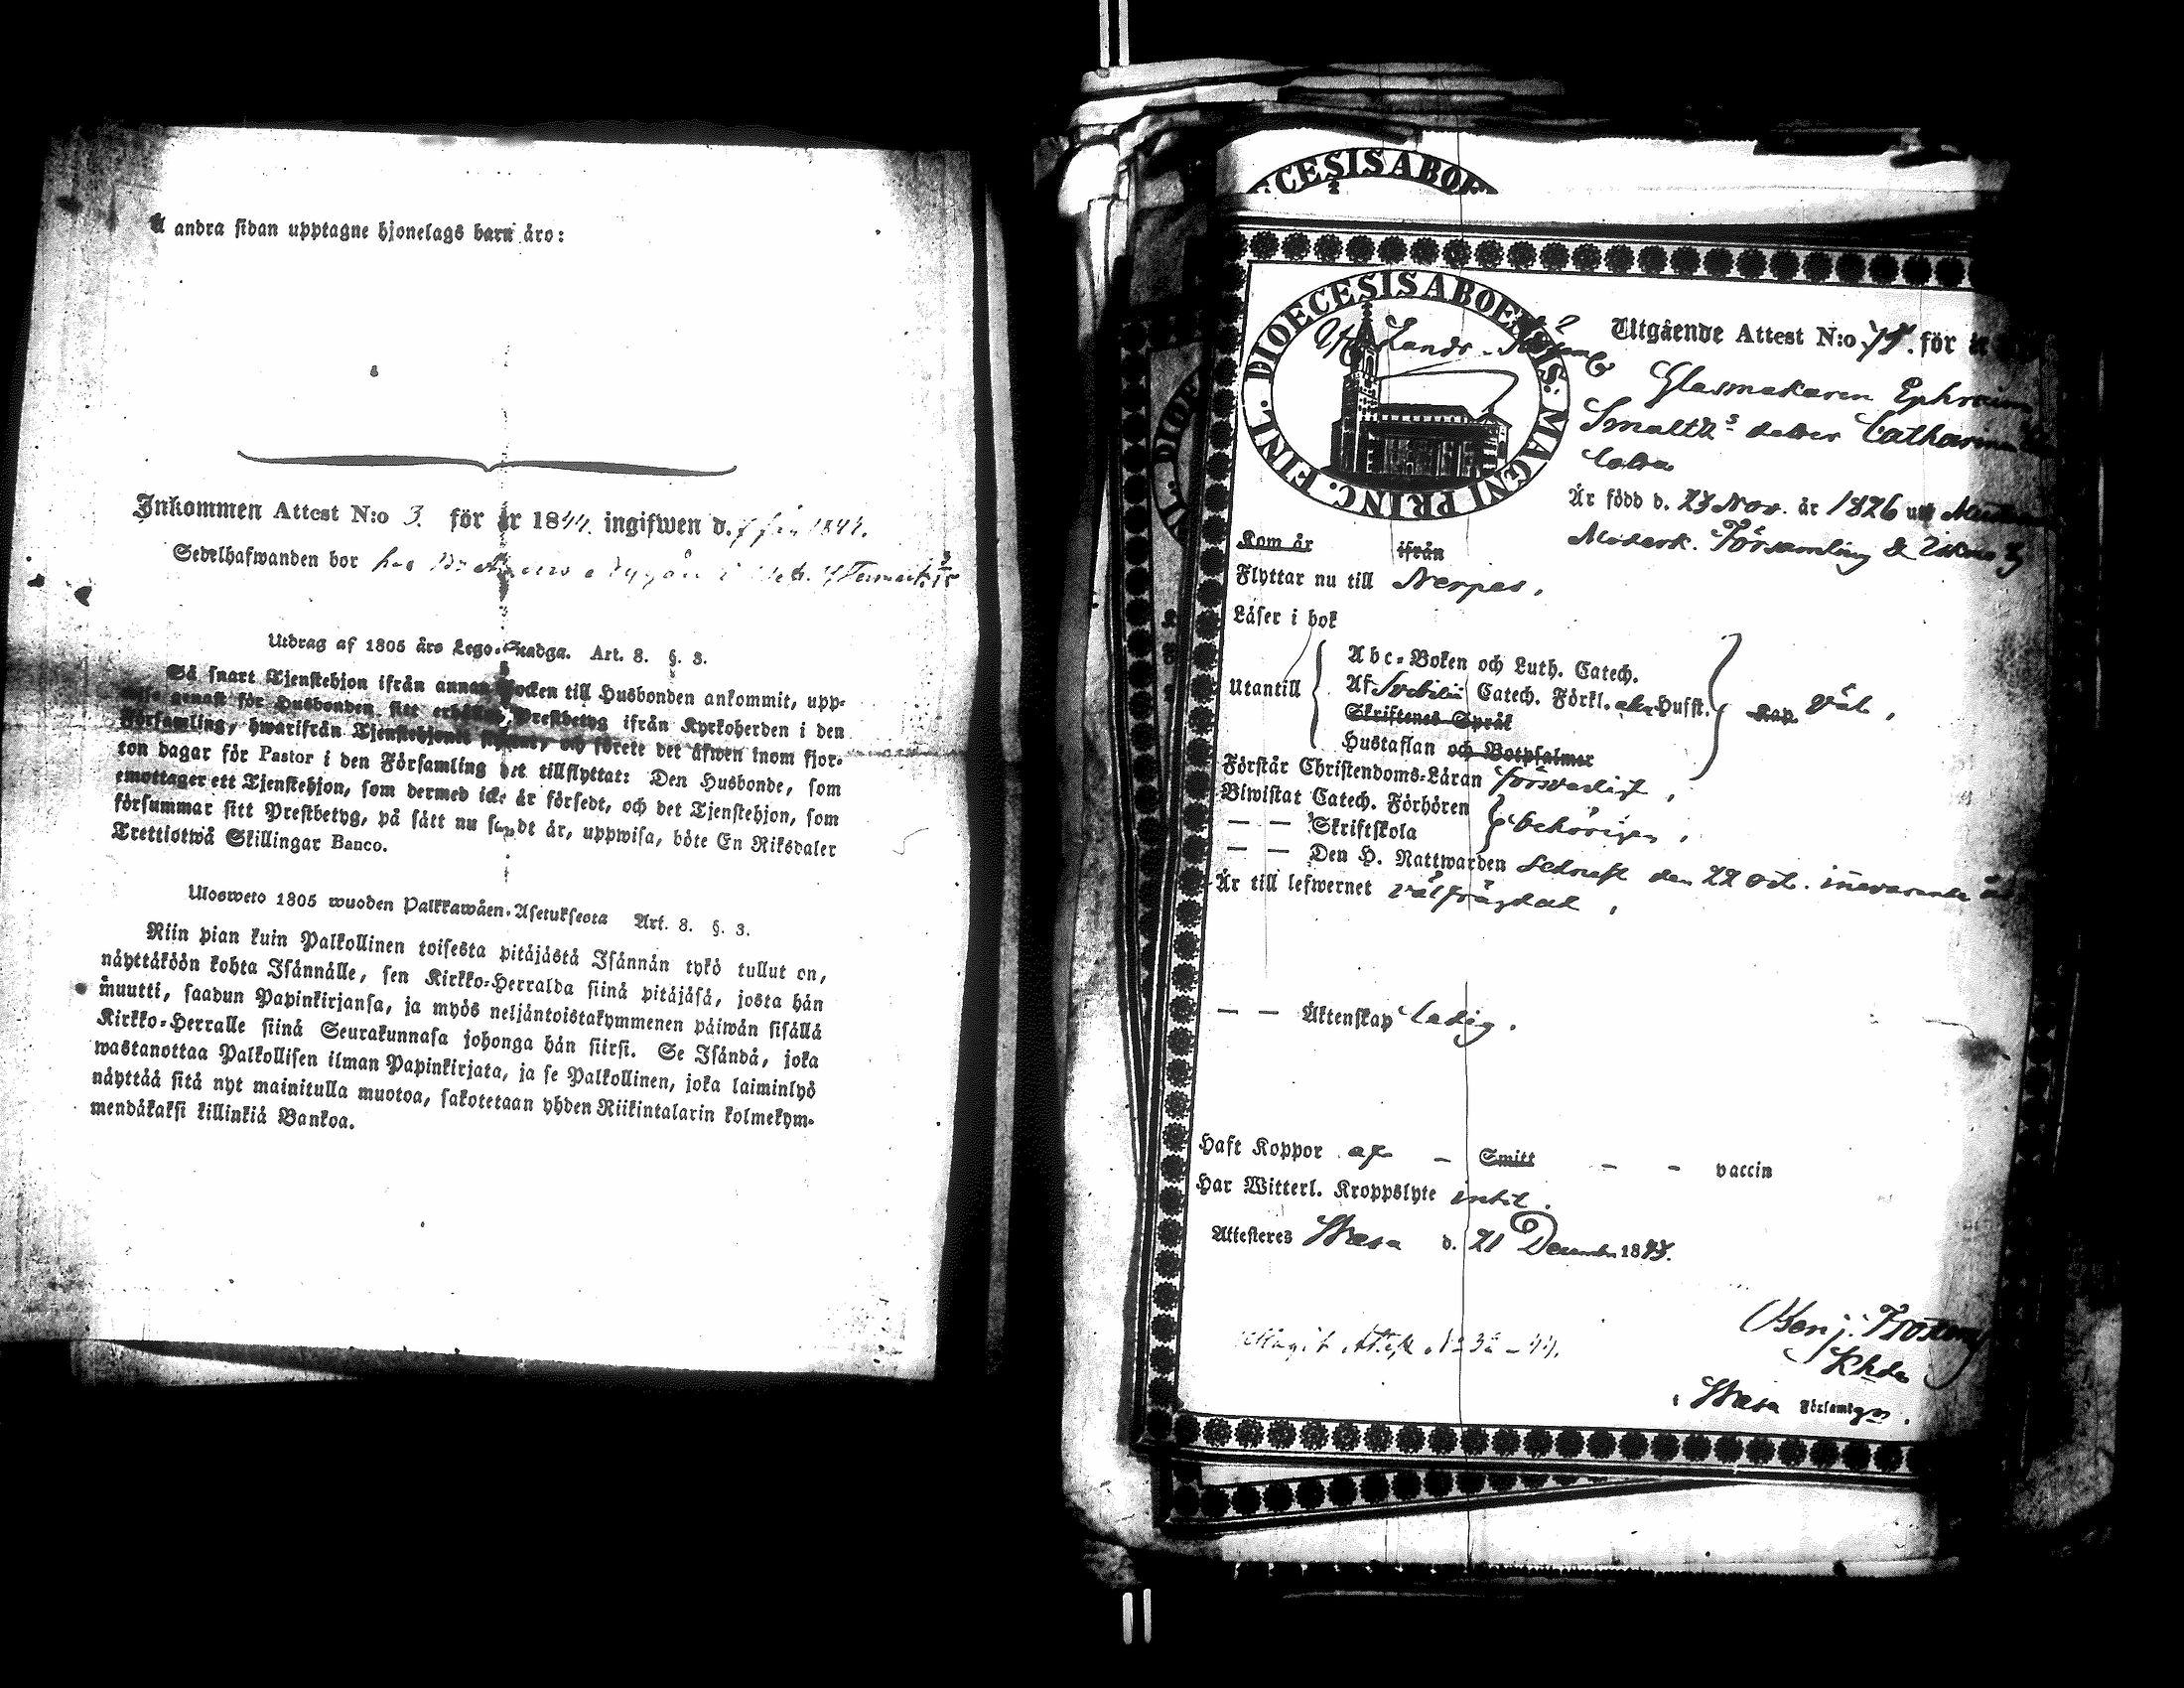 å andra sidan upptagne hjonelags barn äro:
Inkommen Attest N:o 3. för år 1844. ingifwen d. 1844.
Sedelhafwanden bor hos
Utdrag af 1805 års Lego-Stadga. Art. 8. §. 3.
Så snart Tjenstehjon ifrån annan Socken till Husbonden ankommit, upp-
wise genast för Husbonden sitt erhållna Prestbetyg ifrån Kyrkoherden i den
Församling, hwarifrån Tjenstehjonet flyttat, och förete det äfwen inom fjor-
ton dagar för Pastor i den Församling det tillflyttat: Den Husbonde, som
emottager ett Tjenstehjon, som dermed icke är försedt, och det Tjenstehjon, som
försummar sitt Prestbetyg, på sätt nu sagdt är, uppwisa, böte En Riksdaler
Trettiotwå Skillingar Banco.
Ulosweto 1805 wuoden Palkkawäen-Asetuksesta Art. 8. §. 3.
Niin pian kuin Palkollinen toisesta pitäjästä Isännän tykö tullut on,
näyttäköön kohta Isännälle, sen Kirkko-Herralda siinä pitäjäsä, josta hän
muutti, saadun Papinkirjansa, ja myös neljäntoistakymmenen päiwän sisällä
Kirkko-Herralle siinä Seurakunnasa johonga hän siirsi. Se Isändä, joka
wastanottaa Palkollisen ilman Papinkirjata, ja se Palkollinen, joka laiminlyö
näyttää sitä nyt mainitulla muotoa, sakotetaan yhden Riikintalarin kolmekym-
mendäkaksi killinkiä Bankoa.
ECESIS ABOE
DIOECESIS ABOENSIS. MAGNI PRINC. FINL.
Utgående Attest N:o för
Glasmakaren Ephraim
Smalth's dotter Catharina
Är född d. 23 Nov. år 1826 uti
Moderk. Församling &
Kom år ifrån
Flyttar nu till Nerpes,
Läser i bok
Abc-Boken och Luth. Catech.
Utantill Af Svebilii Catech. Förkl. Husst. Kap. väl,
Skriftenes Språk
Hustaflan och Botpsalmer
Förstår Christendoms-Läran försvarligt,
Biwistat Catech. Förhören
— — Skriftskola behörigen,
— — Den H. Nattwarden sednast den 22 Oct. innevarande år
Är till lefwernet välfrägdad,
— — Äktenskap ledig.
Haft Koppor af - Smitt - - vaccin
Har Witterl. Kroppslyte intet.
Attesteres Wasa d. 21 December 1843.
Benj. Frosterus
Khde
i Wasa Församlgn.